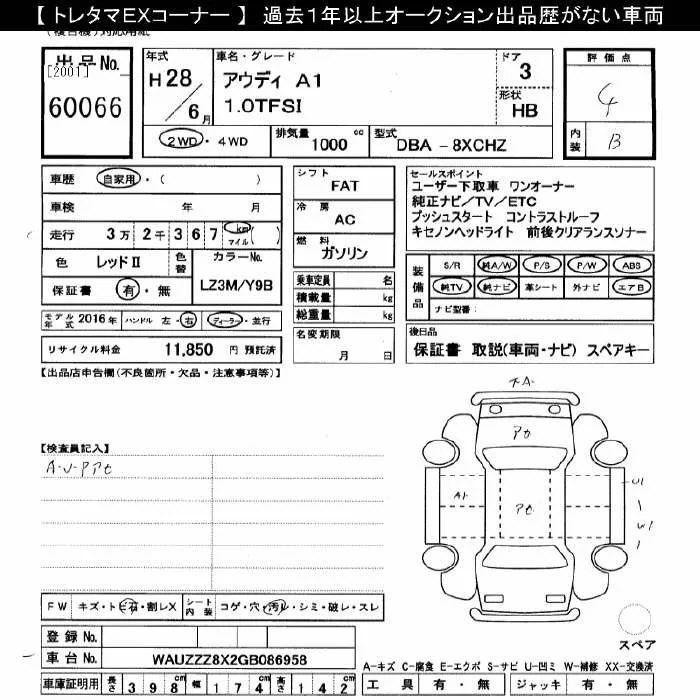 【 トレタマEXコーナー 】 過去1年以上オークション出品歴がない車両
出品No.
[2001]
60066
年式
H 28
/ 6 月
車名・グレード
アウディ A1
1.0TFSI
ドア
3
形状
HB
2WD ・ 4WD
排気量 1000 cc
型式 DBA - 8XCHZ
評価点
4
内装 B
車歴 自家用・( )
車検 年 月
走行 3万 2千 3 6 7 km マイル ( )
色 レッドⅡ 色替 カラーNo. LZ3M/Y9B
保証書 有・無
モデル年式 2016年 ハンドル 左・右 ディーラー・並行
リサイクル料金 11,850 円 預託済
シフト
FAT
冷房
AC
燃料
ガソリン
乗車定員 名
積載量 kg
総重量 kg
名変期限
月 日
セールスポイント
ユーザー下取車 ワンオーナー
純正ナビ/TV/ETC
プッシュスタート コントラストルーフ
キセノンヘッドライト 前後クリアランスソナー
装備品
S/R 純A/W P/S P/W ABS
純TV 純ナビ 革シート 外ナビ エアB
ナビ型番:
後日品
保証書 取説(車両・ナビ) スペアキー
【出品店申告欄(不良箇所・欠品・注意事項等)】
【検査員記入】
A-U-Pアセ
チA-
アセ
A1
アセ
U1
W1
FW キズ・トビ石・割レX シート内装 コゲ・穴・汚レ・シミ・破レ・スレ
登録 No.
車台 No. WAUZZZ8X2GB086958
車庫証明用 長さ 3 9 8 cm 幅 1 7 4 cm 高さ 1 4 2 cm
スペア
A-キズ C-腐食 E-エクボ S-サビ U-凹ミ W-補修 XX-交換済
工具 有・無 ジャッキ 有・無